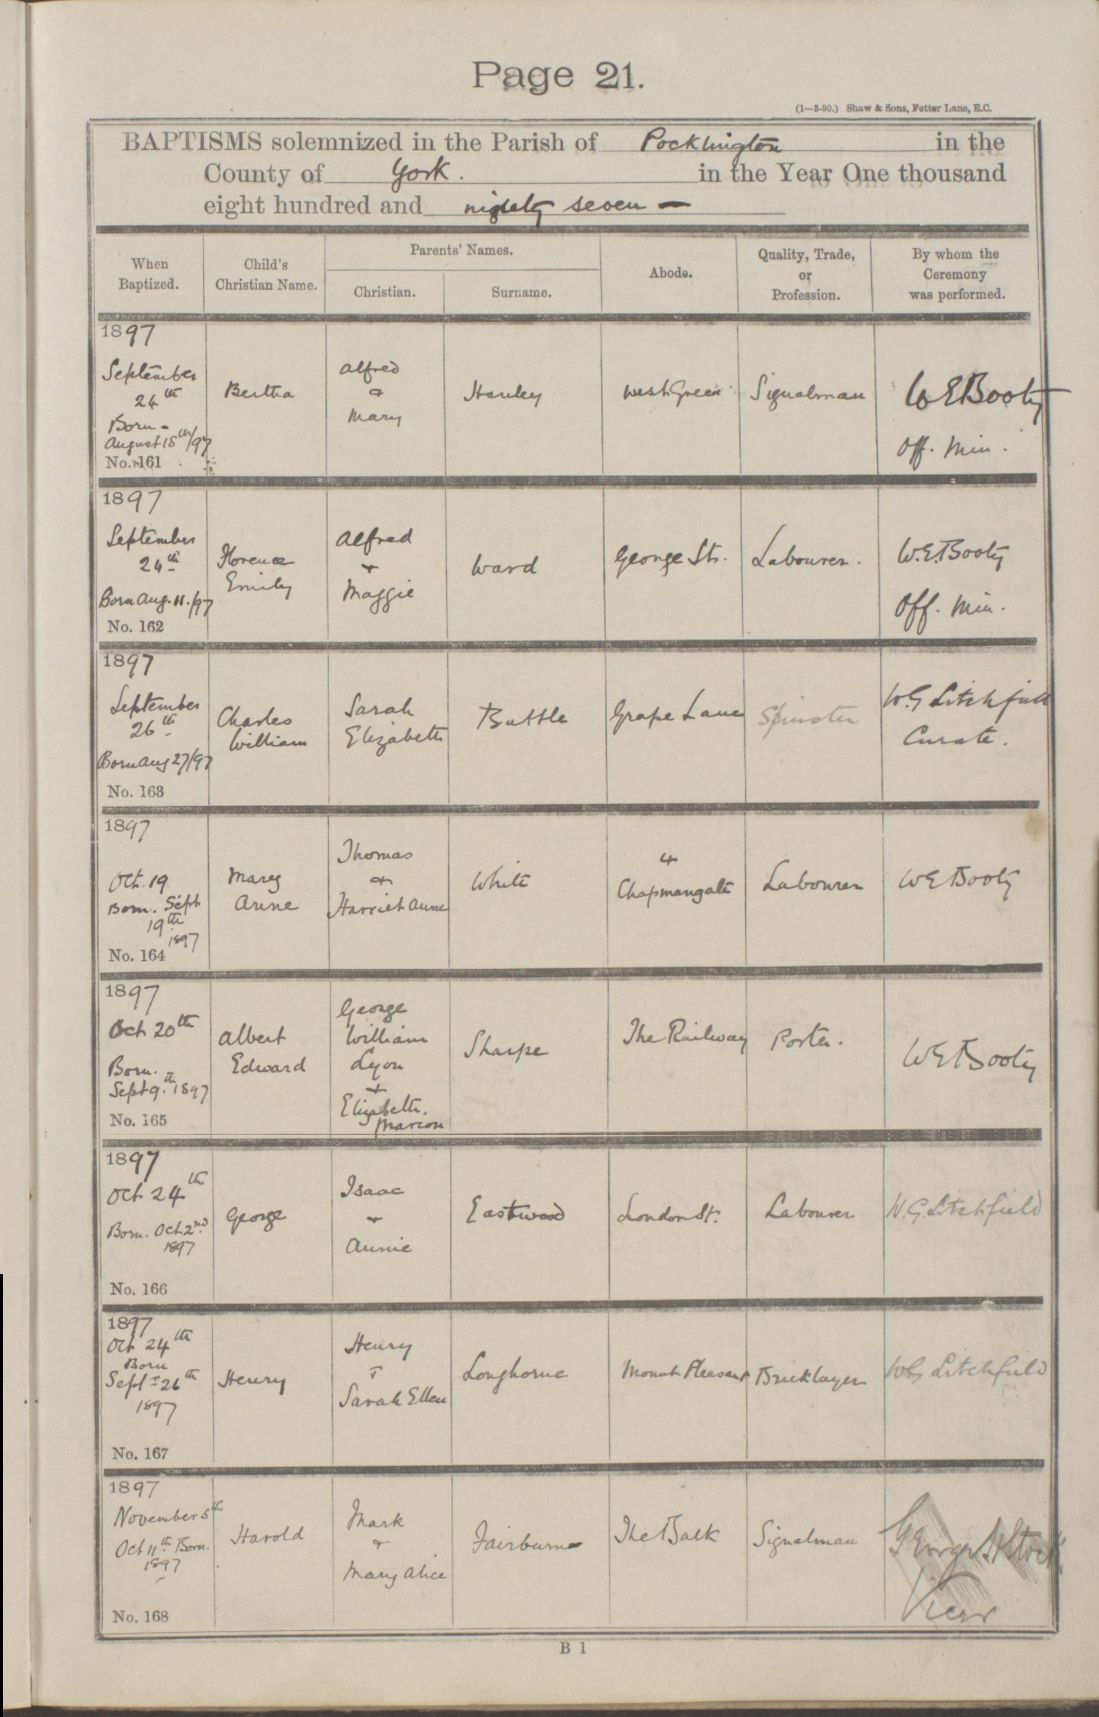 Page 21.
(1—3-90.) Shaw & Sons, Fetter Lane, E.C.
BAPTISMS solemnized in the Parish of Pocklington in the
County of York. in the Year One thousand
eight hundred and ninety seven —
When Baptized.
Child's Christian Name.
Parents' Names.
Christian.
Surname.
Abode.
Quality, Trade, or Profession.
By whom the Ceremony was performed.
1897
September
24th
Born -
August 15th/97
No. 161
Bertha
Alfred
&
Mary
Hanley
West Green
Signalman
W E Booty
Off. Min.
1897
September
24th
Born Aug. 11./97
No. 162
Florence
Emily
Alfred
&
Maggie
Ward
George St.
Labourer.
W. E. Booty
Off. Min.
1897
September
26th
Born Aug 27/97
No. 163
Charles
William
Sarah
Elizabeth
Buttle
Grape Lane
Spinster
W. G Litchfield
Curate.
1897
Oct. 19
Born. Sept
19th
1897
No. 164
Mary
Anne
Thomas
&
Harriet Anne
White
Chapmangate
Labourer
W E Booty
1897
Oct 20th
Born. -
Sept 9.th 1897
No. 165
Albert
Edward
George
William
Lyon
&
Elizabeth.
Marion
Sharpe
The Railway
Porter.
W E Booty
1897
Oct 24th
Born. Oct 2nd
1897
No. 166
George
Isaac
&
Annie
Eastwood
London St.
Labourer
W. G. Litchfield
1897
Oct 24th
Born
Sept 26th
1897
No. 167
Henry
Henry
&
Sarah Ellen
Longhorne
Mount Pleasant
Bricklayer
W G Litchfield
1897
November 5th
Oct 11th Born.
1897
No. 168
Harold
Mark
&
Mary Alice
Fairburn
The Balk
Signalman
Vicar
B 1